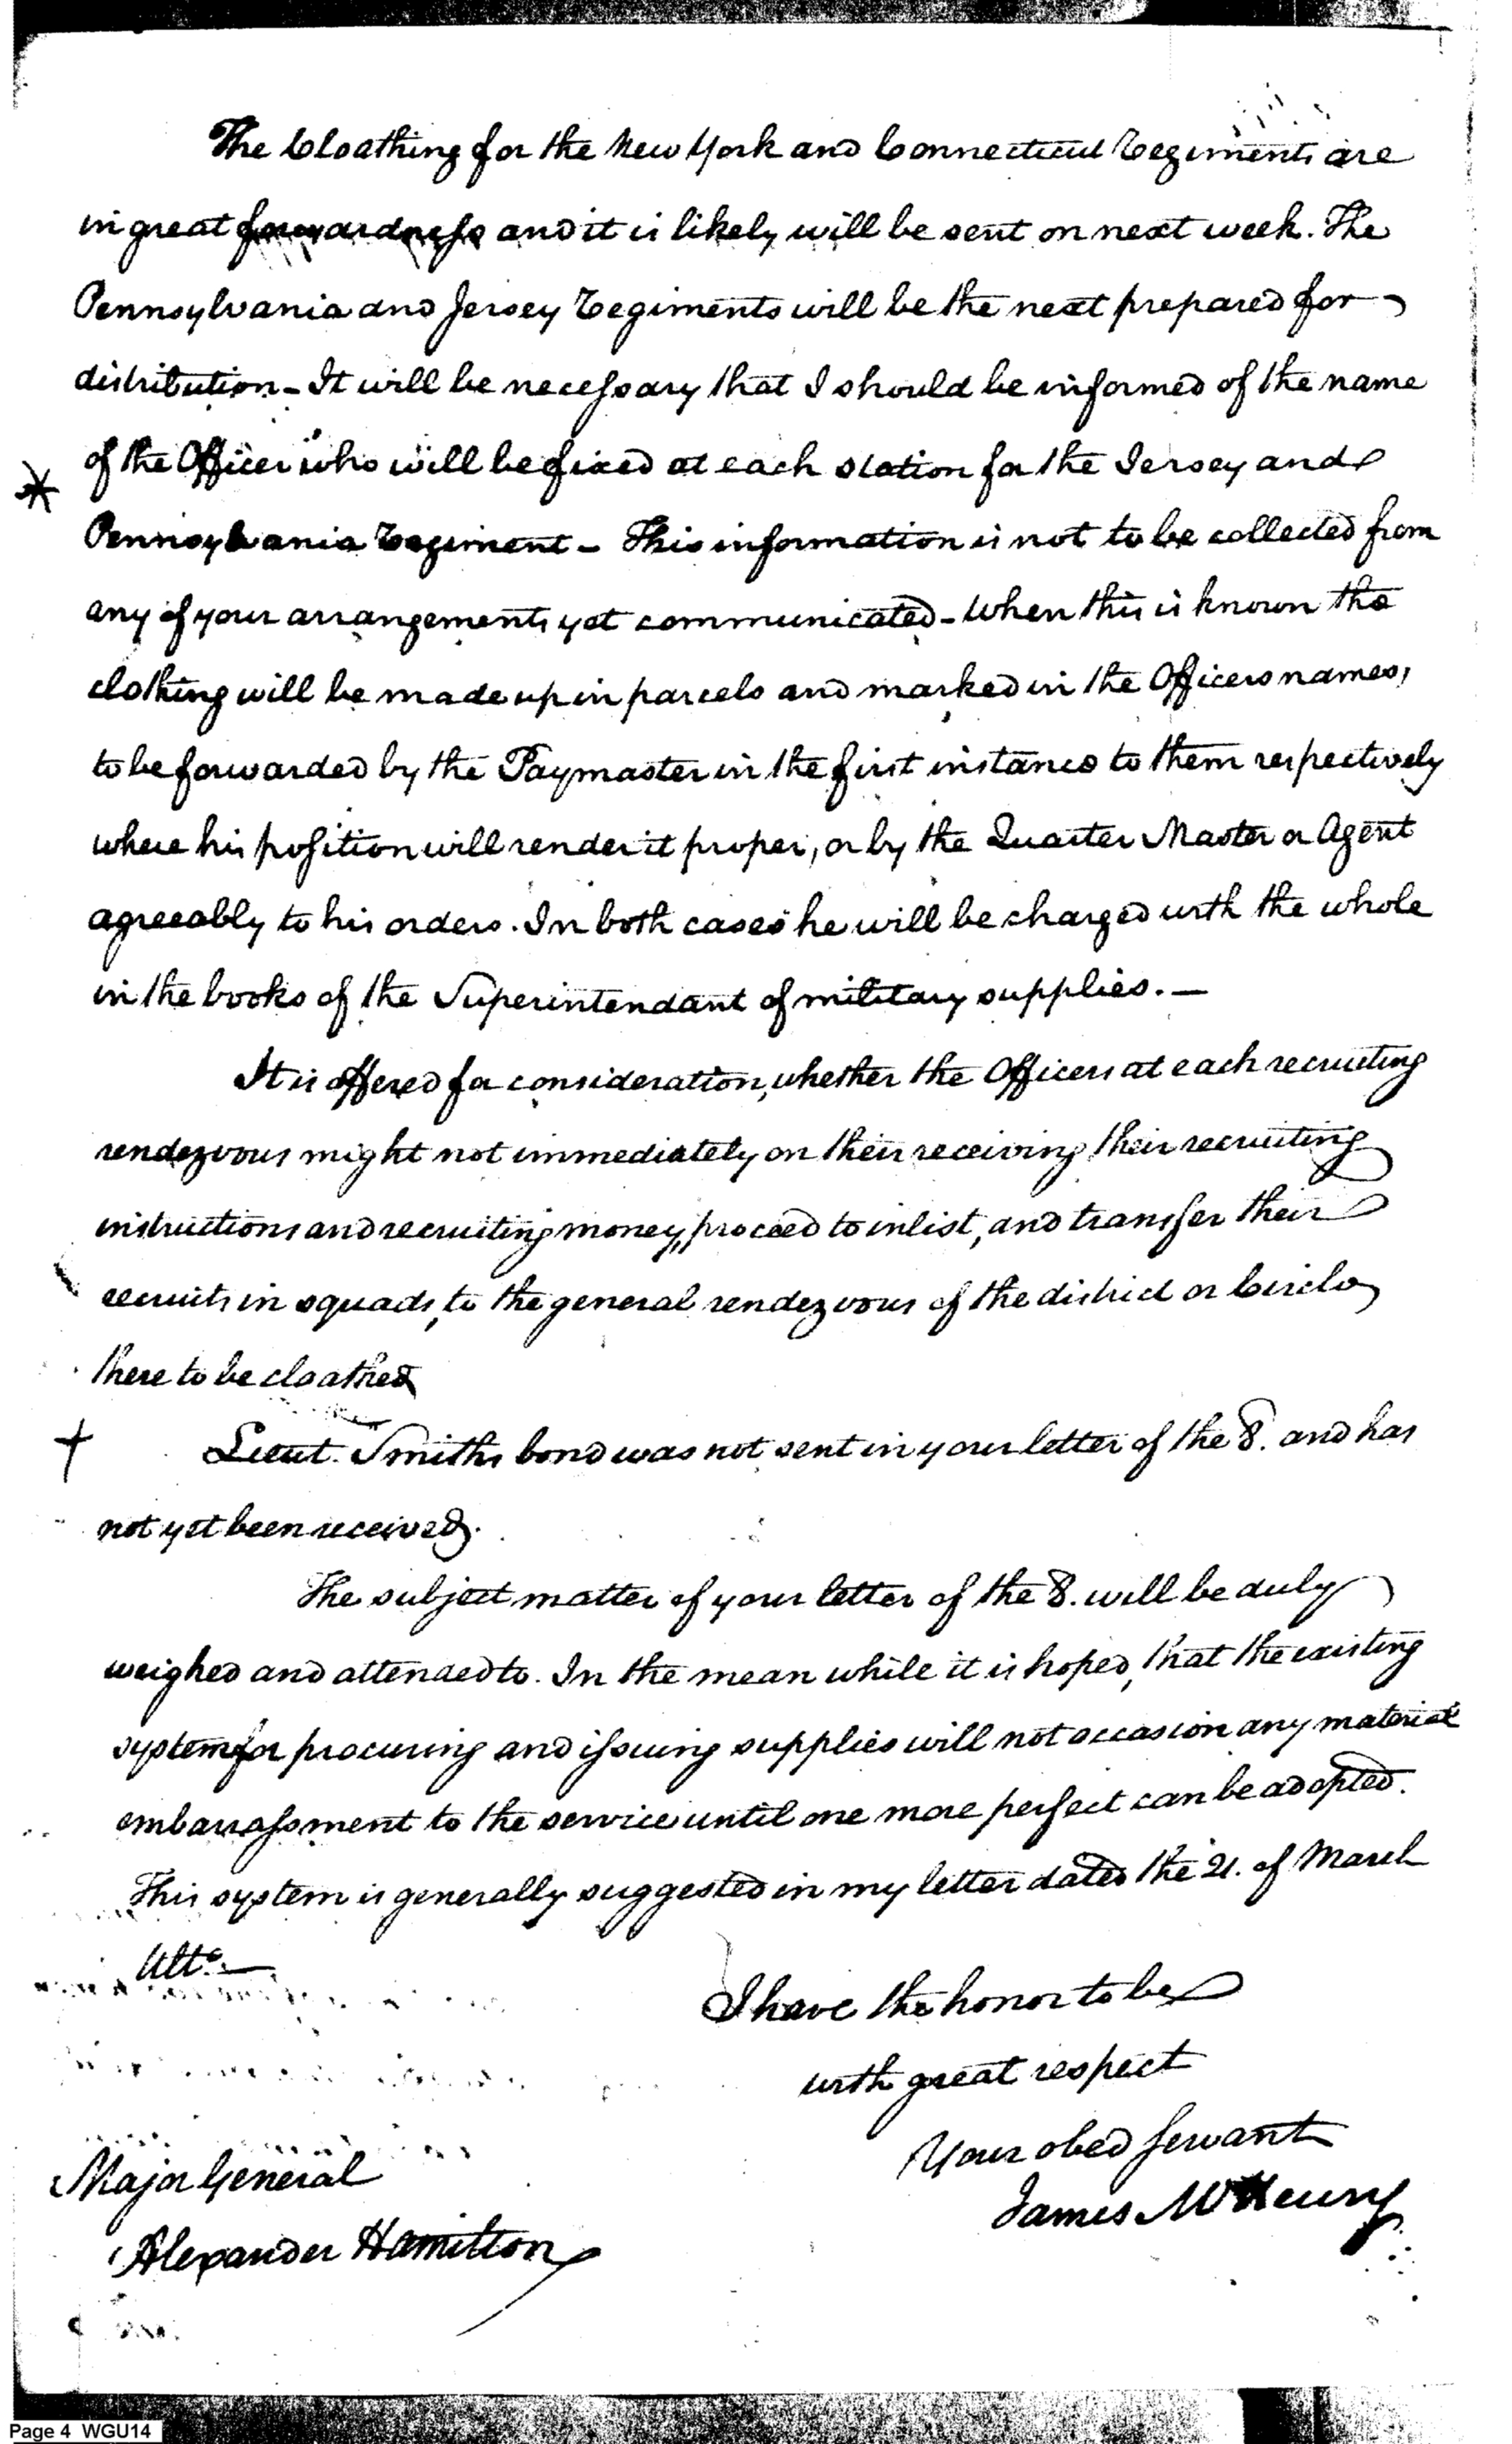 The Cloathing for the New York and Connecticut Regiments are
in great forwardness and it is likely will be sent on next week. The
Pennsylvania and Jersey Regiments will be the next prepared for
distribution - It will be necessary that I should be informed of the name
of the Officer who will be fixed at each station for the Jersey and
Pennsylvania Regiment - This information is not to be collected from
any of your arrangements yet communicated - When this is known the
clothing will be made up in parcels and marked in the Officers names,
to be forwarded by the Paymaster in the first instance to them respectively
where his position will render it proper, or by the Quarter Master or Agent
agreeably to his orders. In both cases he will be charged with the whole
in the books of the Superintendant of military supplies. —
It is offered for consideration, whether the Officers at each recruiting
rendezvous might not immediately on their receiving their recruiting
instructions and recruiting money, proceed to inlist, and transfer their
recruits in squads, to the general rendezvous of the district or Circle
there to be cloathed
Lieut. Smiths bond was not sent in your letter of the 8. and has
not yet been received.
The subject matter of your letter of the 8. will be duly
weighed and attended to. In the mean while it is hoped, that the existing
system for procuring and issuing supplies will not occasion any material
embarrassment to the service until one more perfect can be adopted.
This system is generally suggested in my letter dated the 21. of March
Ulto. —
I have the honor to be
with great respect
Your obed servant
James McHenry
Major General
Alexander Hamilton
Page 4 WGU14